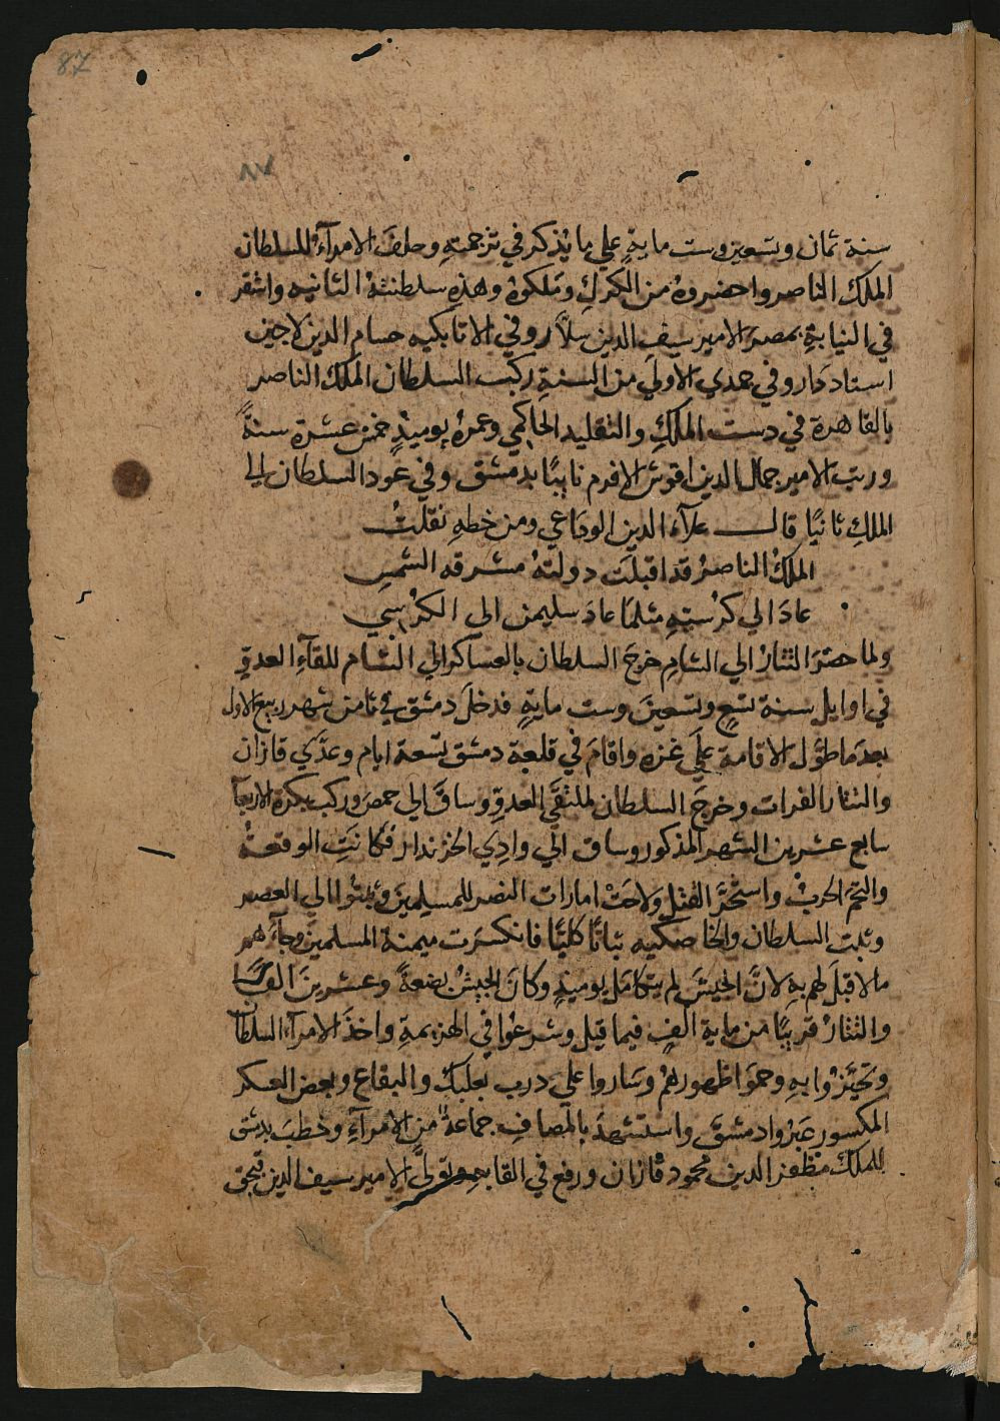 87
٨٧
سنة ثمان وتسعين وست ماية علي ما يذكر في ترجمته وحلف الامرآء للسلطان
الملك الناصر واحضروه من الكرك وملكوه وهذه سلطنته الثانيه واستقر
في النيابة بمصر الامير سيف الدين سلار وفي الاتابكيه حسام الدين لاجين
استاد دار وفي جمدي الاولي من السنة ركب السلطان الملك الناصر
بالقاهرة في دست الملك والتقليد الحاكمي وعمره يوميذ خمس عشرة سنةً
ورتب الامير جمال الدين اقوش الافرم نايبًا بدمشق وفي عود السلطان الي
الملك ثانيًا قال علآء الدين الوداعي ومن خطه نقلت
الملك الناصر قد اقبلت دولته مشرقه الشمس
عاد الي كرسيه مثلما عاد سليمن الى الكرسي
ولما حضر التتار الي الشام خرج السلطان بالعساكر الي الشام للقآء العدو
في اوايل سنة تسع وتسعين وست ماية فدخل دمشق في ثامن شهر ربيع الاول
بعد ما طول الاقامة علي غزه واقام في قلعة دمشق تسعة ايام وعدي قازان
والتتار الفرات وخرج السلطان لملتقي العدو وساق الي حمص وركب بكرة الاربعآ
سابع عشرين الشهر المذكور وساق الي وادي الخزندار فكانت الوقعة
والتحم الحرب واستحر القتل ولاحت امارات النصر للمسلمين وثبتوا الي العصر
وثبت السلطان والخاصكيه ثباتًا كليًا فانكسرت ميمنة المسلمين وجآءهم
مالا قبل لهم به لان الجيش لم يتكامل يوميذ وكان الجيش بضعةً وعشرين الفًا
والتتار قريبًا من ماية الف فيما قيل وشرعوا في الهزيمة واخذ الامرآء السلطان
وتحيزوا به وحموا ظهورهم وساروا علي درب بعلبك والبقاع وبعض العسكر
المكسور عبروا دمشق واستشهد بالمصاف جماعة من الامرآء وخطب بدمشق
للملك مظفر الدين محمود قازان ورفع في القابه وتولي الامير سيف الدين قبجق